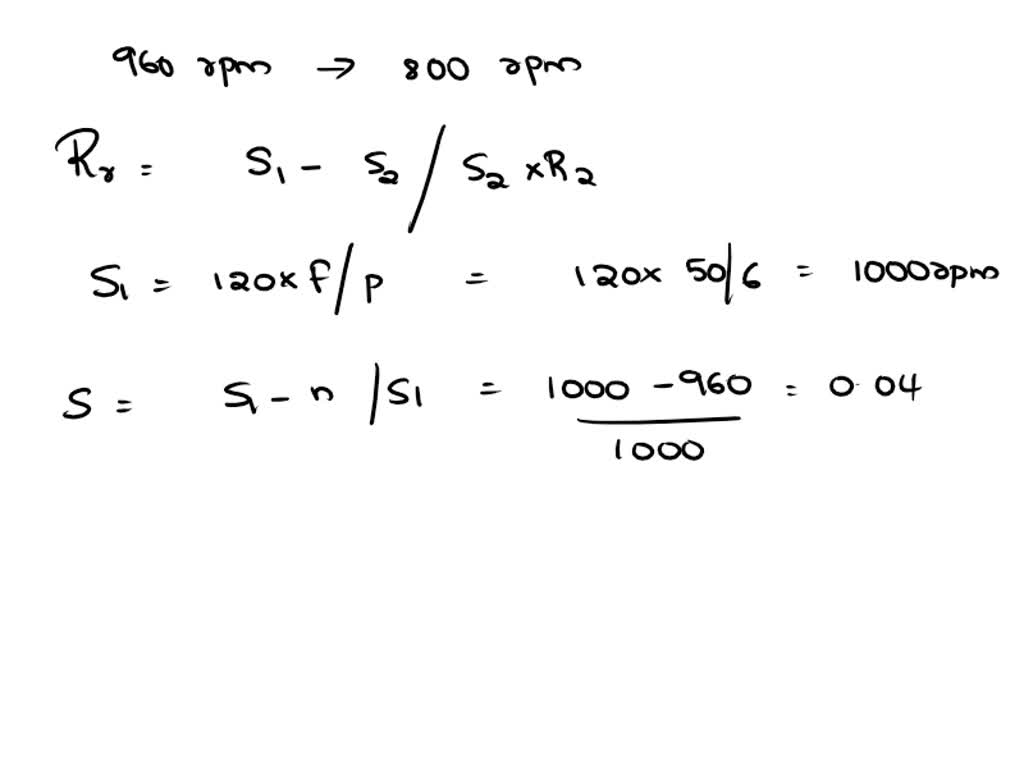 960 rpm → 800 rpm
Rr = S1 - S2 / S2 x R2
S1 = 120 x f / p = 120 x 50/6 = 1000 rpm
S = S1 - n / S1 = 1000 - 960 / 1000 = 0.04